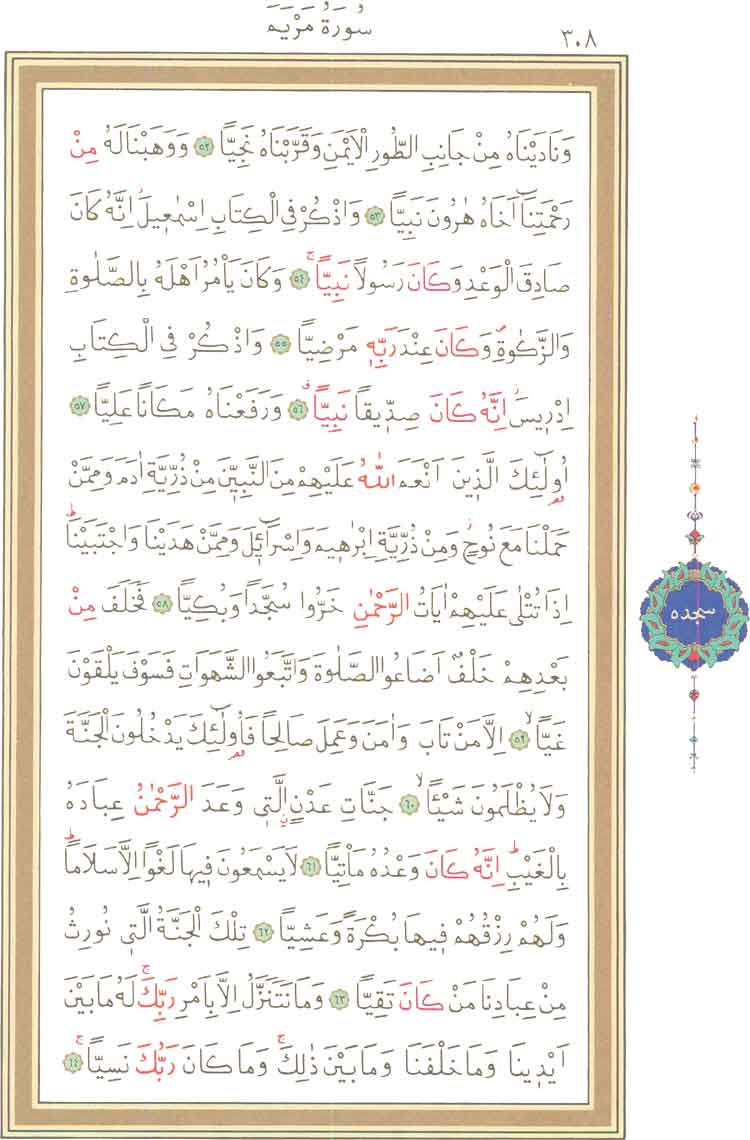 سُورَةُ مَرْيَمَ
٣٠٨
وَنَادَيْنَاهُ مِنْ جَانِبِ الطُّورِ الْاَيْمَنِ وَقَرَّبْنَاهُ نَجِيًّا ﴿٥٢﴾ وَوَهَبْنَا لَهُ مِنْ
رَحْمَتِنَٓا اَخَاهُ هٰرُونَ نَبِيًّا ﴿٥٣﴾ وَاذْكُرْ فِي الْكِتَابِ اِسْمٰعٖيلَؗ اِنَّهُ كَانَ
صَادِقَ الْوَعْدِ وَكَانَ رَسُولًا نَبِيًّاۚ ﴿٥٤﴾ وَكَانَ يَأْمُرُ اَهْلَهُ بِالصَّلٰوةِ
وَالزَّكٰوةِࣕ وَكَانَ عِنْدَ رَبِّهٖ مَرْضِيًّا ﴿٥٥﴾ وَاذْكُرْ فِي الْكِتَابِ
اِدْرٖيسَؗ اِنَّهُ كَانَ صِدّٖيقًا نَبِيًّاࣗ ﴿٥٦﴾ وَرَفَعْنَاهُ مَكَانًا عَلِيًّا ﴿٥٧﴾
اُو۬لٰٓئِكَ الَّذٖينَ اَنْعَمَ اللّٰهُ عَلَيْهِمْ مِنَ النَّبِيّٖنَ مِنْ ذُرِّيَّةِ اٰدَمَ وَمِمَّنْ
حَمَلْنَا مَعَ نُوحٍؗ وَمِنْ ذُرِّيَّةِ اِبْرٰهٖيمَ وَاِسْرَٓائٖلَؗ وَمِمَّنْ هَدَيْنَا وَاجْتَبَيْنَاؕ
اِذَا تُتْلٰى عَلَيْهِمْ اٰيَاتُ الرَّحْمٰنِ خَرُّوا سُجَّدًا وَبُكِيًّا ﴿٥٨﴾ فَخَلَفَ مِنْ
بَعْدِهِمْ خَلْفٌ اَضَاعُوا الصَّلٰوةَ وَاتَّبَعُوا الشَّهَوَاتِ فَسَوْفَ يَلْقَوْنَ
غَيًّاۙ ﴿٥٩﴾ اِلَّا مَنْ تَابَ وَاٰمَنَ وَعَمِلَ صَالِحًا فَاُو۬لٰٓئِكَ يَدْخُلُونَ الْجَنَّةَ
وَلَا يُظْلَمُونَ شَيْـًٔاۙ ﴿٦٠﴾ جَنَّاتِ عَدْنٍۨ الَّتٖي وَعَدَ الرَّحْمٰنُ عِبَادَهُ
بِالْغَيْبِؕ اِنَّهُ كَانَ وَعْدُهُ مَأْتِيًّا ﴿٦١﴾ لَا يَسْمَعُونَ فٖيهَا لَغْوًا اِلَّا سَلَامًاؕ
وَلَهُمْ رِزْقُهُمْ فٖيهَا بُكْرَةً وَعَشِيًّا ﴿٦٢﴾ تِلْكَ الْجَنَّةُ الَّتٖي نُورِثُ
مِنْ عِبَادِنَا مَنْ كَانَ تَقِيًّا ﴿٦٣﴾ وَمَا نَتَنَزَّلُ اِلَّا بِاَمْرِ رَبِّكَۚ لَهُ مَا بَيْنَ
اَيْدٖينَا وَمَا خَلْفَنَا وَمَا بَيْنَ ذٰلِكَۚ وَمَا كَانَ رَبُّكَ نَسِيًّاۚ ﴿٦٤﴾
سجده